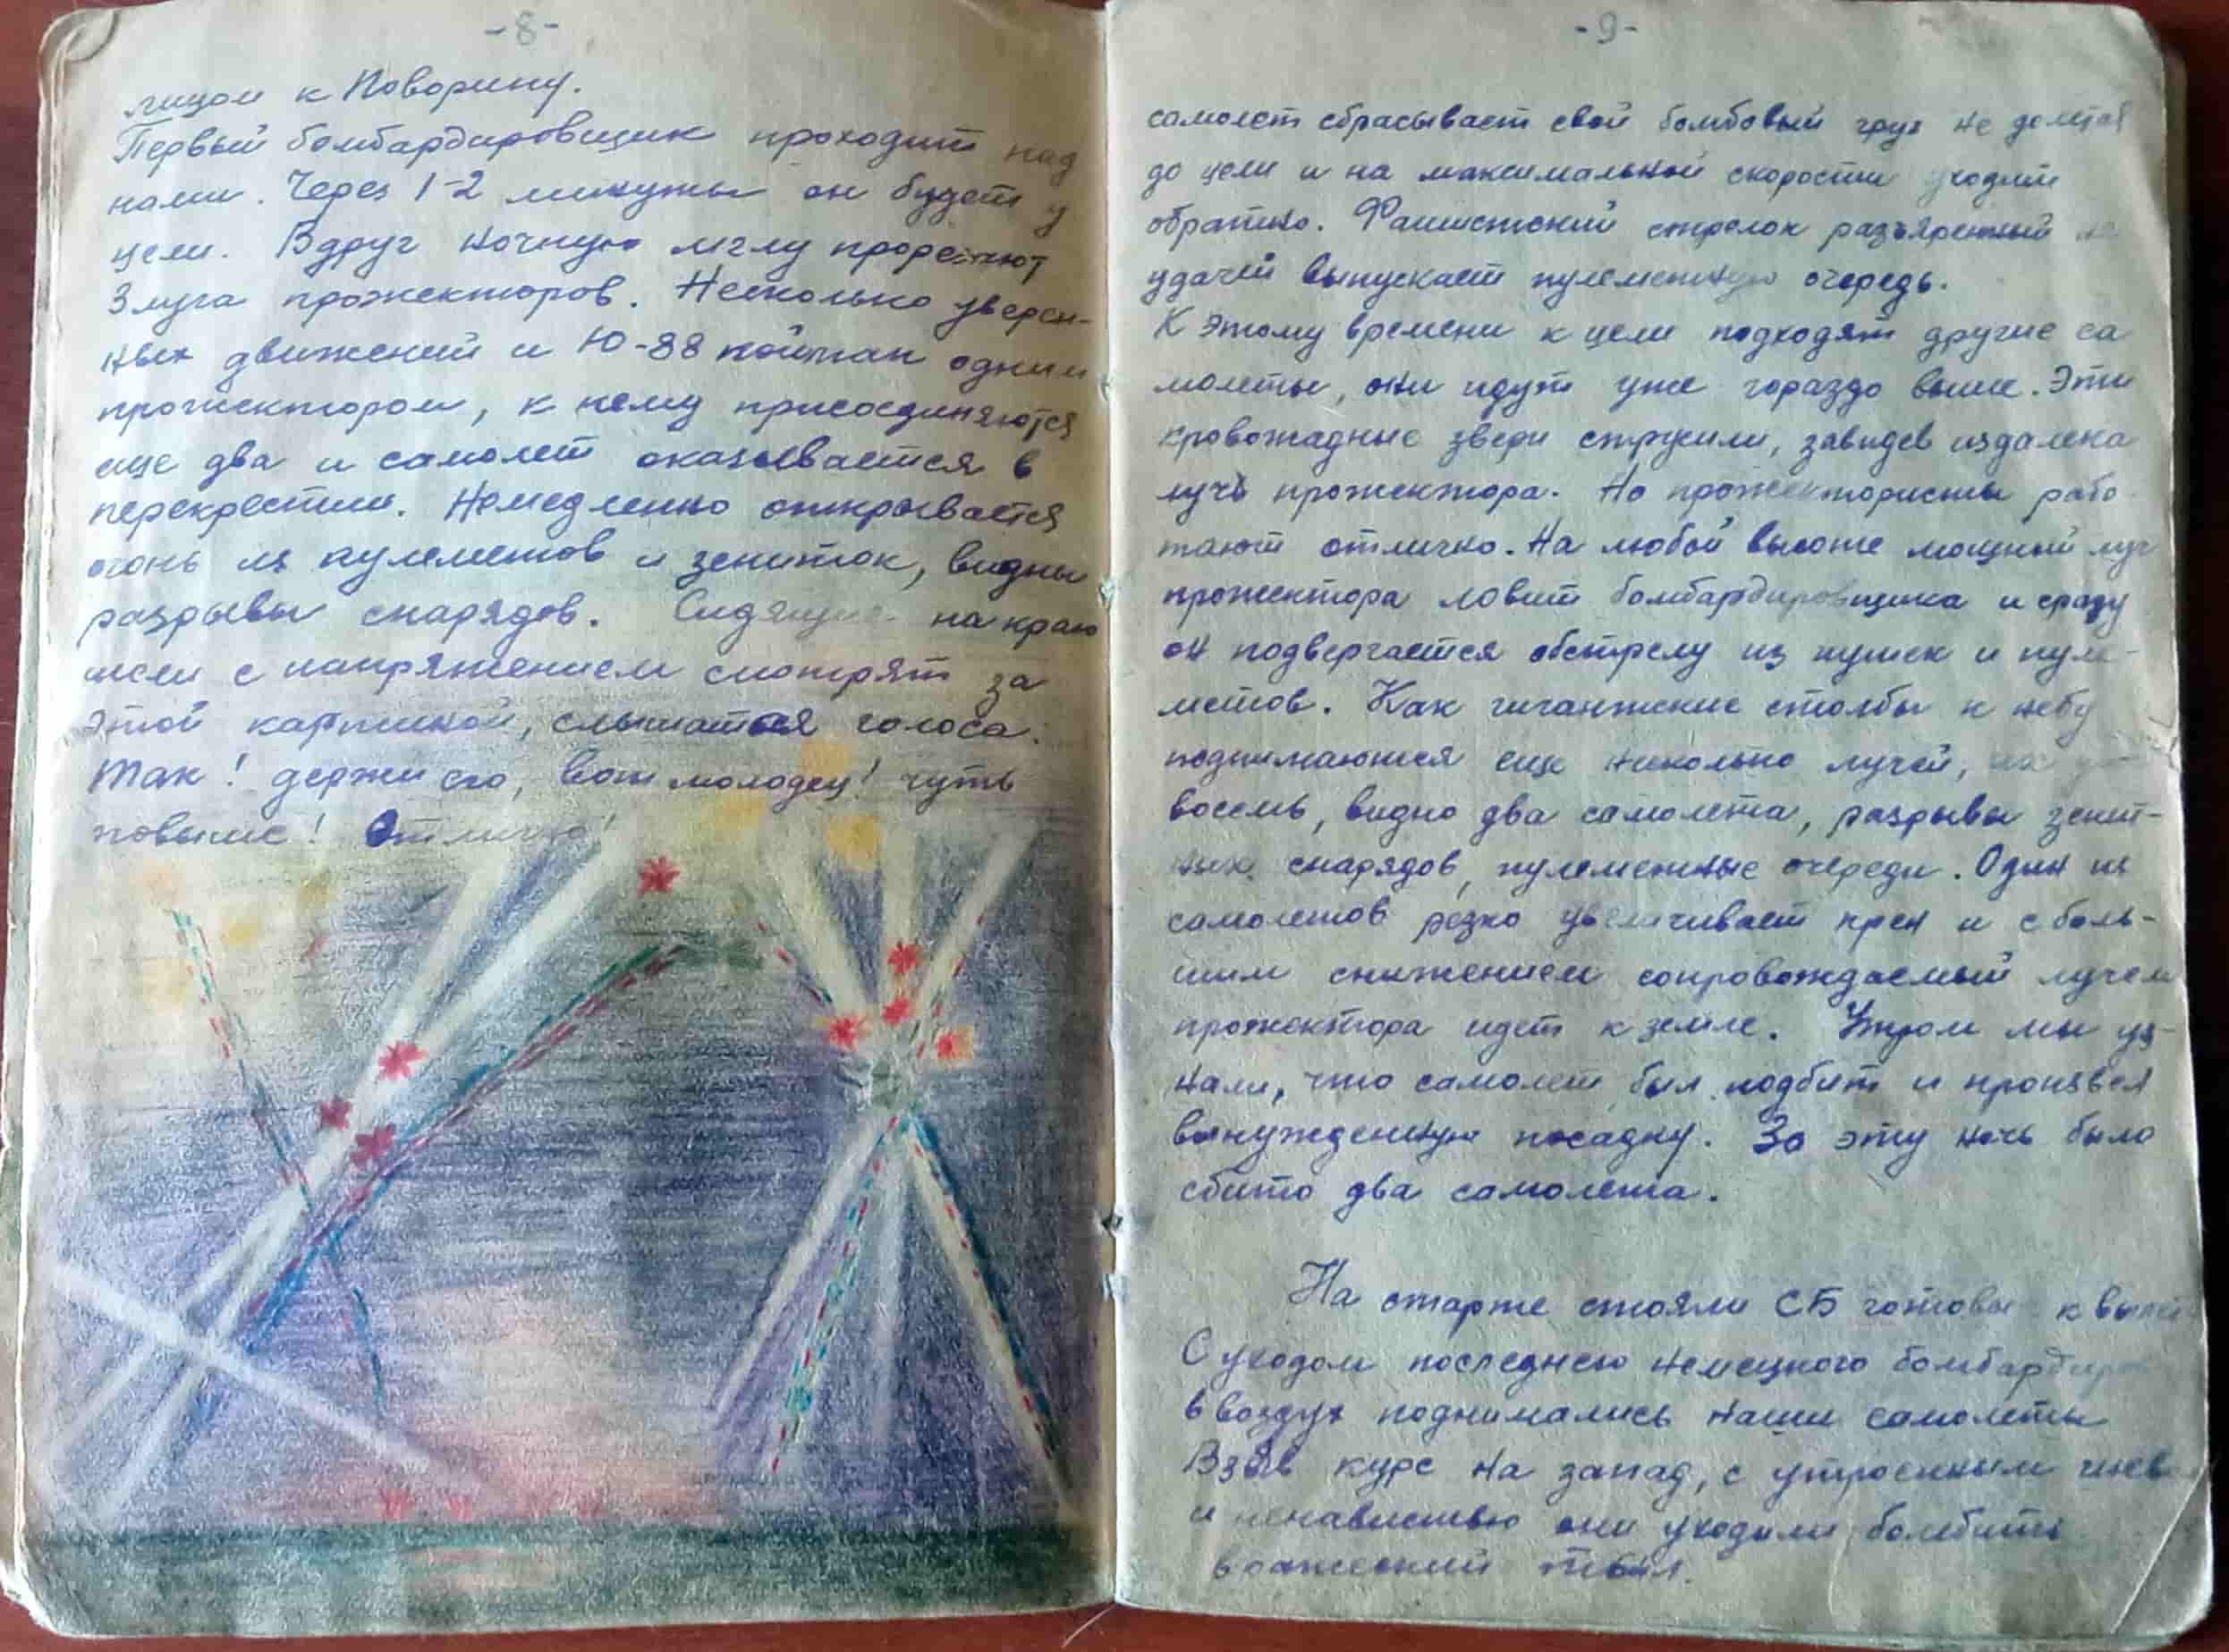 -8-
лицом к Поворину.
Первый бомбардировщик проходит над
нами. Через 1-2 минуты он будет у
цели. Вдруг ночную мглу прорезают
3 луча прожекторов. Несколько уверен-
ных движений и Ю-88 пойман одним
прожектором, к нему присоединяются
еще два и самолет оказывается в
перекрестии. Немедленно открывается
огонь из пулеметов и зениток, видны
разрывы снарядов. Сидящие на краю
щели с напряжением смотрят за
этой картиной, слышатся голоса:
Так! держи его, вот молодец! чуть
повыше! Отлично!
-9-
самолет сбрасывает свой бомбовый груз не долетая
до цели и на максимальной скорости уходит
обратно. Фашистский стрелок разъяренный не
удачей выпускает пулеметную очередь.
К этому времени к цели подходят другие са
молеты, они идут уже гораздо выше. Эти
кровожадные звери струсили, завидев издалека
лучь прожектора. Но прожектористы рабо
тают отлично. На любой высоте мощный луч
прожектора ловит бомбардировщика и сразу
он подвергается обстрелу из пушек и пуле-
метов. Как гигантские столбы к небу
поднимаются еще несколько лучей, их
восемь, видно два самолета, разрывы зенит-
ных снарядов, пулеметные очереди. Один из
самолетов резко увеличивает крен и с боль-
шим снижением сопровождаемый лучем
прожектора идет к земле. Утром мы уз-
нали, что самолет был подбит и произвел
вынужденную посадку. За эту ночь было
сбито два самолета.
На старте стояли СБ готовые к
С уходом последнего немецкого
в воздух поднимались наши самолеты
Взяв курс на запад, с утроенным
и ненавистью они уходили бомбить
вражеский тыл.